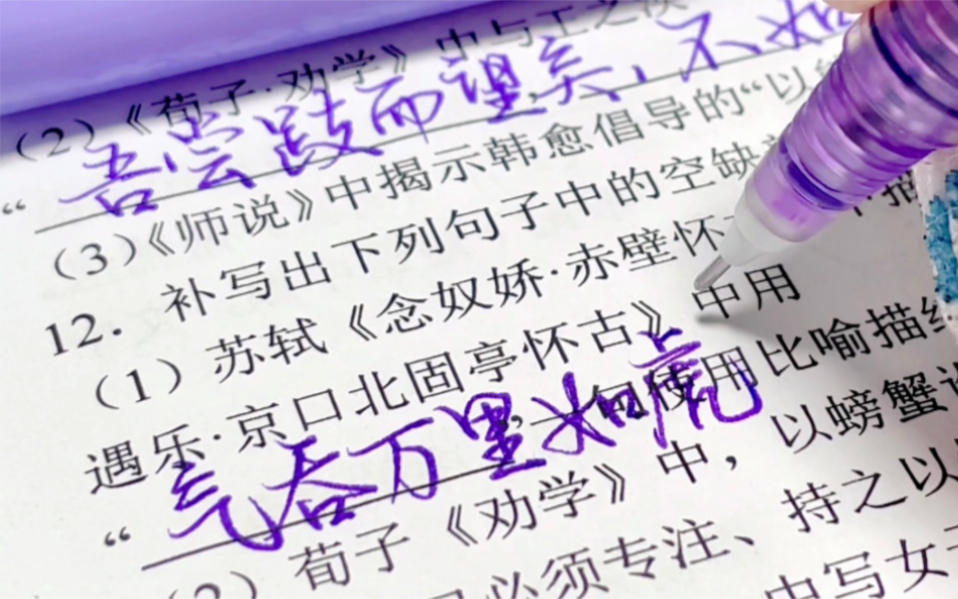 (2)《荀子·劝学》中与王之涣
“吾尝跂而望矣，不如
(3)《师说》中揭示韩愈倡导的“以
12. 补写出下列句子中的空缺
(1)苏轼《念奴娇·赤壁怀古》中用
遇乐·京口北固亭怀古》
“气吞万里如虎，一句使用比喻描
(2)荀子《劝学》中，以螃蟹
必须专注、持之以
中写女